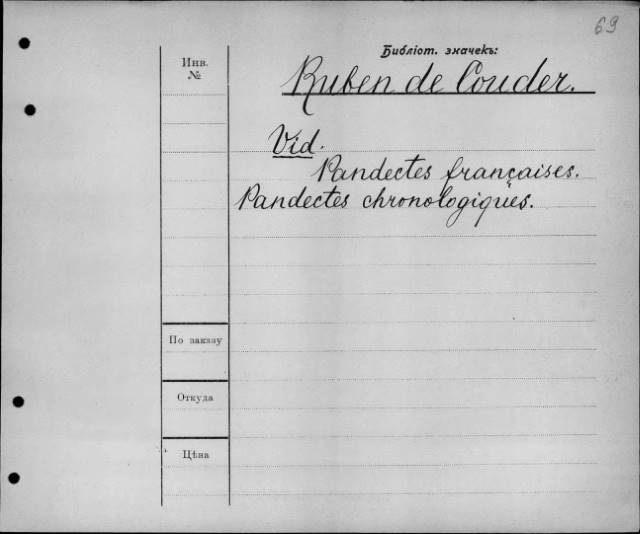 69
Библіот. значекъ:
Инв.
№
Ruben de Couder.
Vid.
Pandectes françaises.
Pandectes chronologiques.
По заказу
Откуда
Цѣна